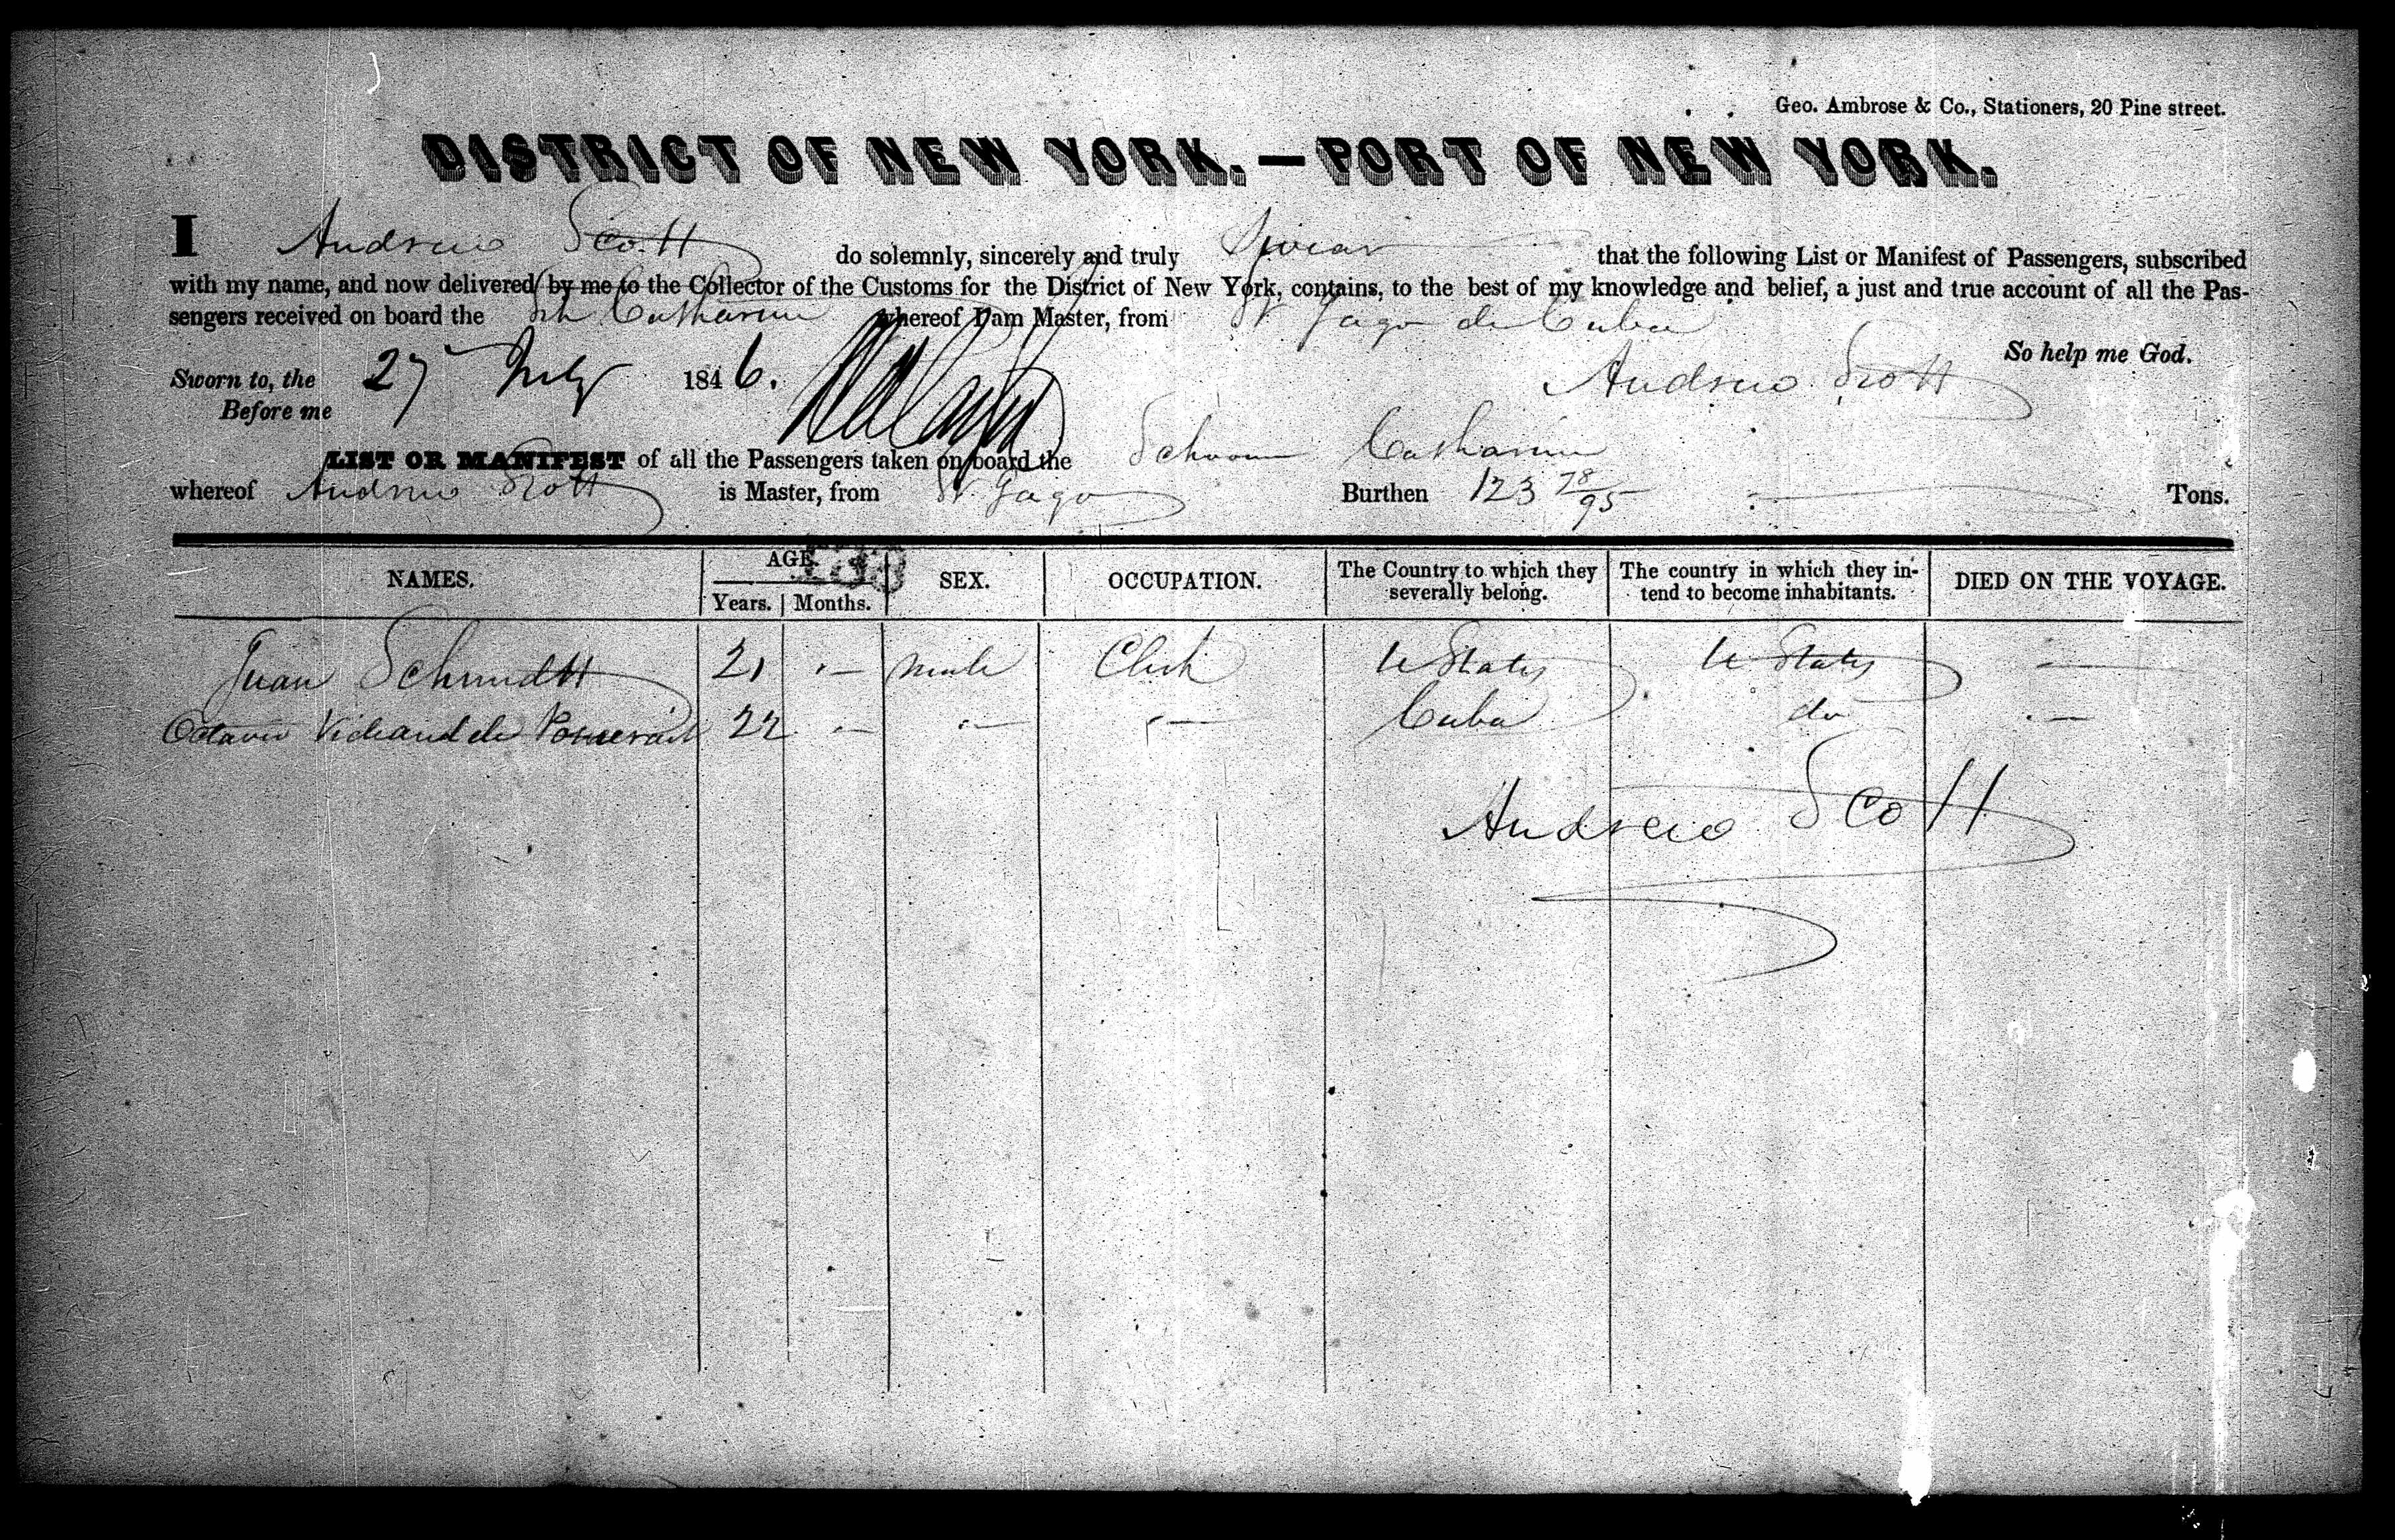 Geo. Ambrose & Co., Stationers, 20 Pine street.
DISTRICT OF NEW YORK.—PORT OF NEW YORK.
I Andrew Scott do solemnly, sincerely and truly Swear that the following List or Manifest of Passengers, subscribed
with my name, and now delivered by me to the Collector of the Customs for the District of New York, contains, to the best of my knowledge and belief, a just and true account of all the Pas-
sengers received on board the Sch Catharine whereof I am Master, from St Jago de Cuba
So help me God.
Sworn to, the 27 July 1846. Andrew Scott
Before me
LIST OR MANIFEST of all the Passengers taken on board the Schooner Catharine
whereof Andrew Scott is Master, from St. Jago Burthen 123 78/95 Tons.
NAMES. AGE. SEX. OCCUPATION. The Country to which they severally belong. The country in which they in- tend to become inhabitants. DIED ON THE VOYAGE.
Years. Months.
Juan Schmidtt 21 — male Clerk U States U States —
Octavio 22 — — — Cuba do —
Andrew Scott